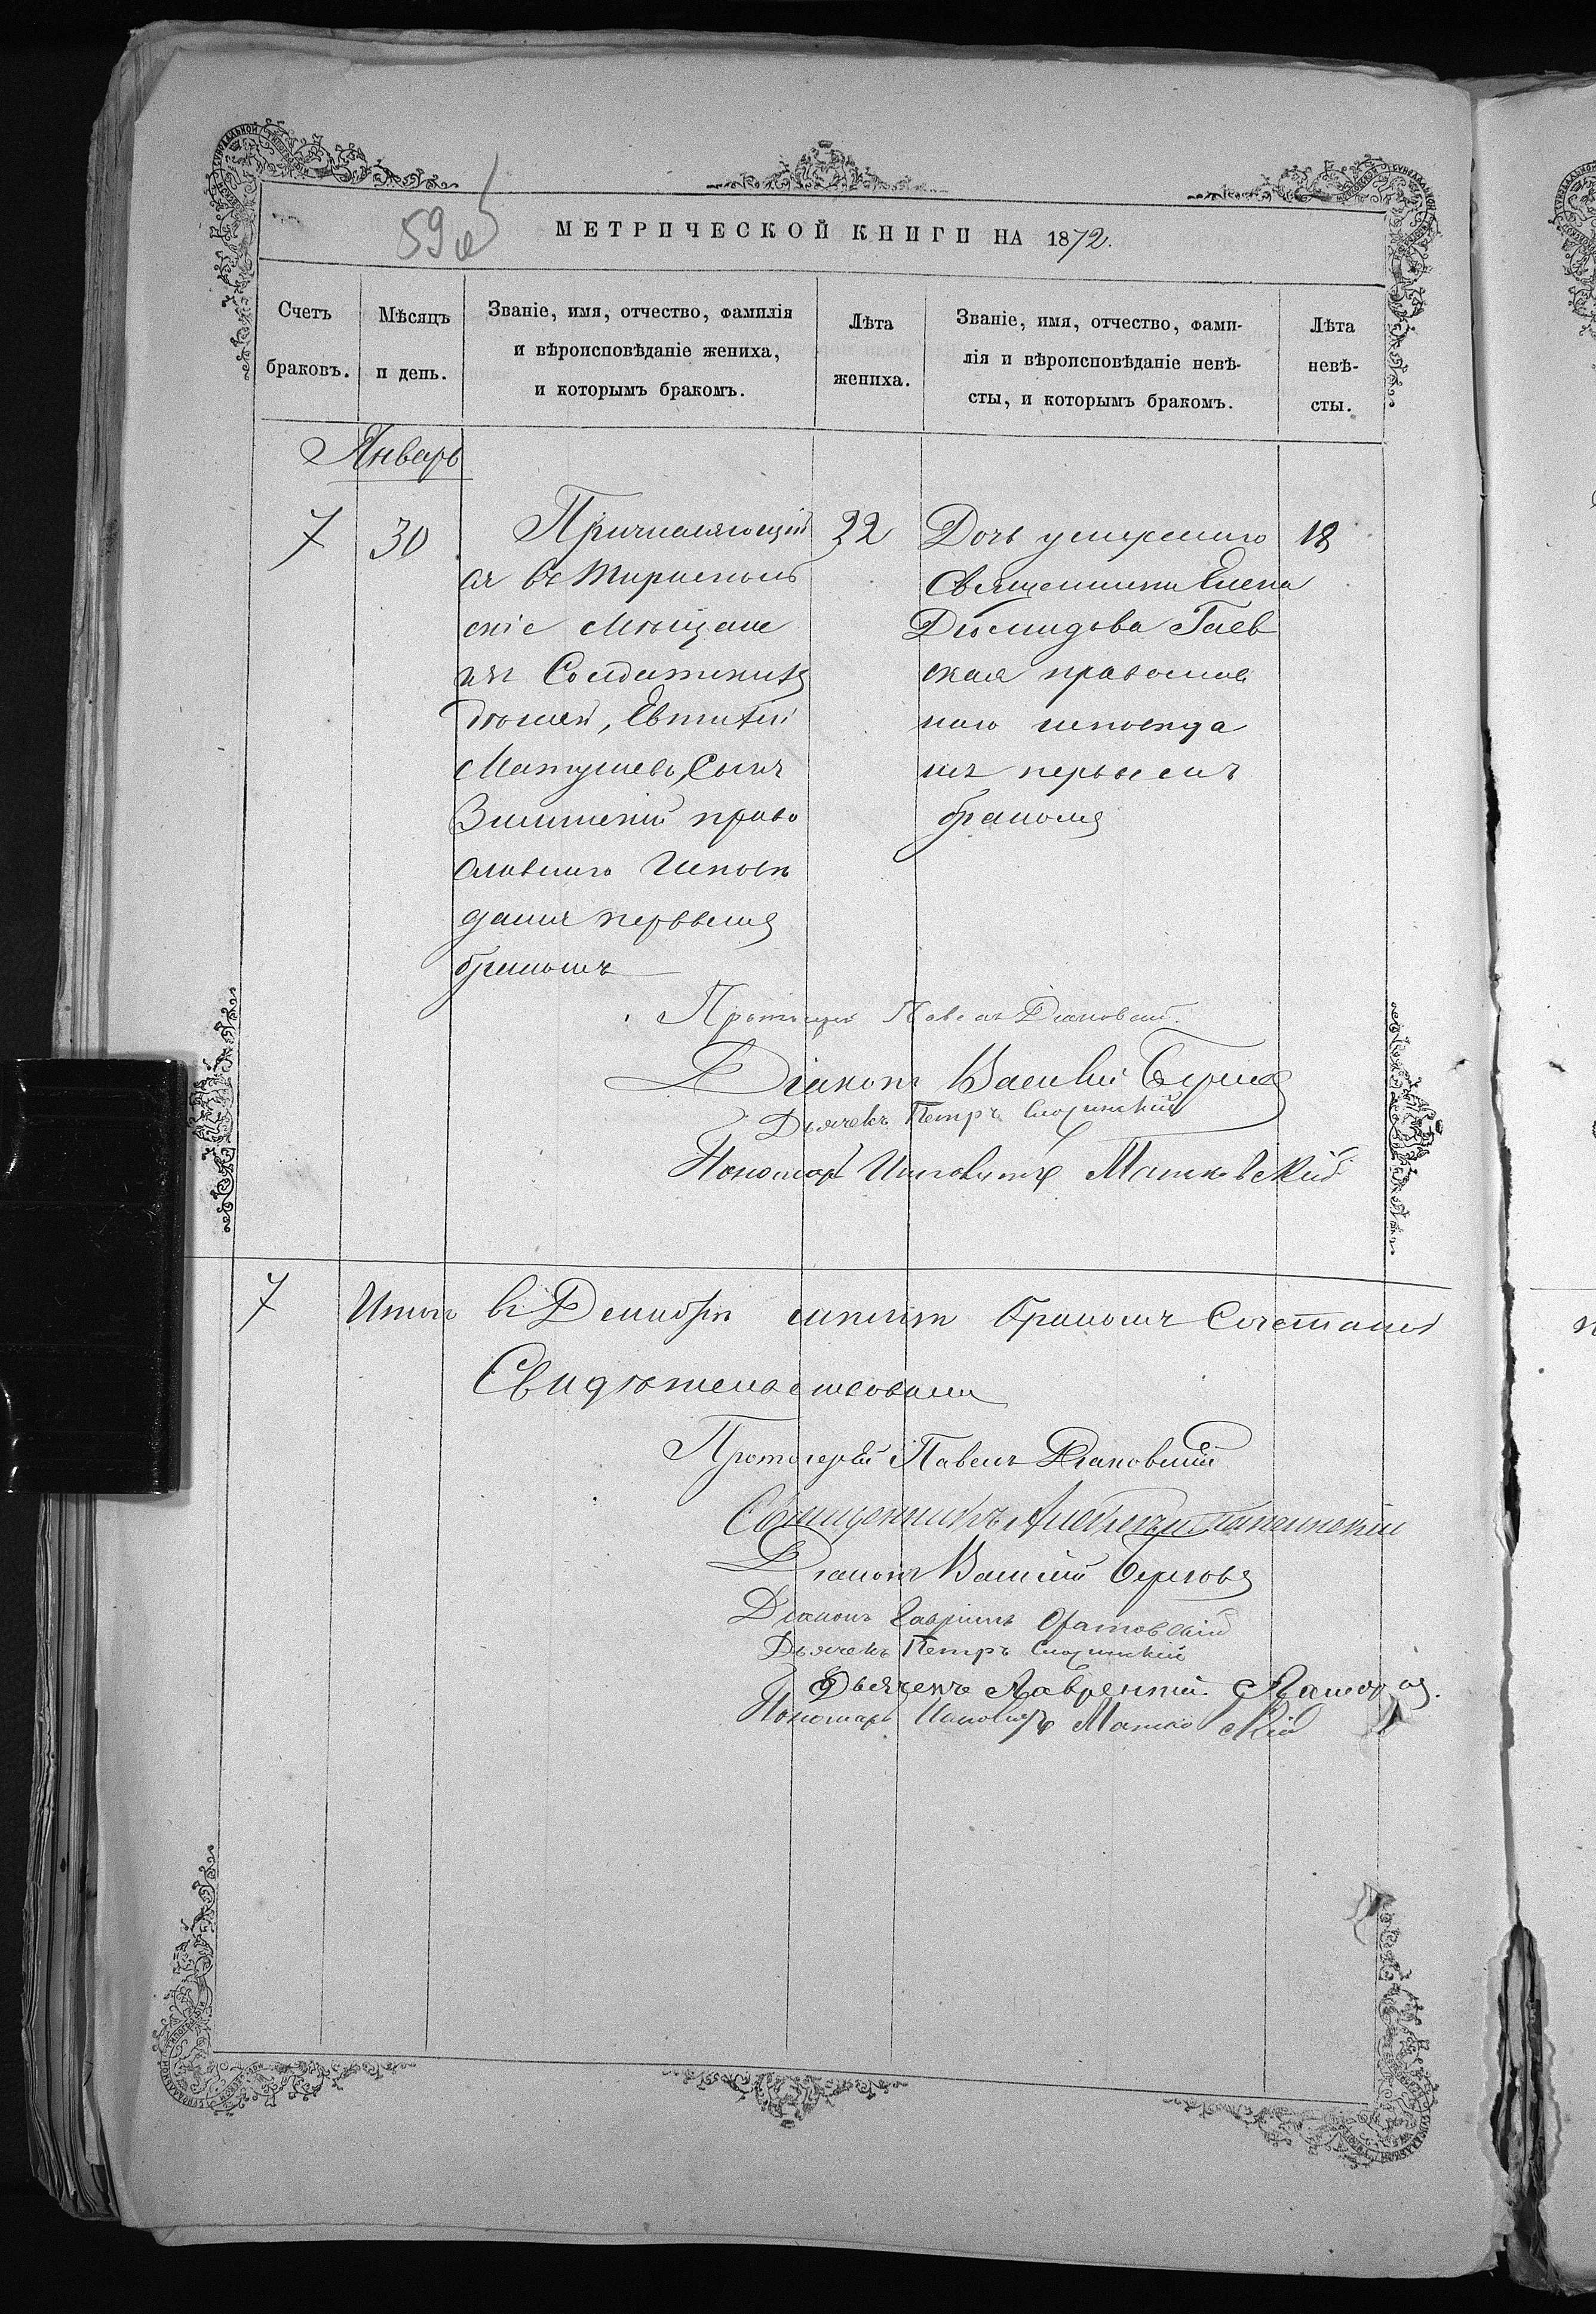 59 об
МЕТРИЧЕСКОЙ КНИГИ НА 1872.
Счетъ браковъ.
Мѣсяцъ и день.
Званіе, имя, отчество, фамилія
и вѣроисповѣданіе жениха,
и которымъ бракомъ.
Лѣта жениха.
Званіе, имя, отчество, фами-
лія и вѣроисповѣданіе невѣ-
сты, и которымъ бракомъ.
Лѣта невѣ-
сты.
Январь
7
30
Причисляющій
ся въ Тирасполь
скіе Мѣщане
изъ Солдатскихъ
дѣтей, Евтихій
сынъ
право
славнаго Исповѣ
данія первымъ
бракомъ
22
Дочь умершаго
Священника Елена
Діомидова Гаев
ская православ
наго исповѣда
нія первымъ
бракомъ
18
Протоіерей Павелъ Діаковскій.
Діаконъ Василій
Дьячекъ Петръ
Пономарь
7
Итого въ бракомъ Сочетались
Свидѣтельствовали
Протоіерей Павелъ Діаковскій
Священникъ
Діаконъ Василій
Діаконъ Гавріилъ
Дьячекъ Петръ
Дьячекъ Лаврентій
Пономарь